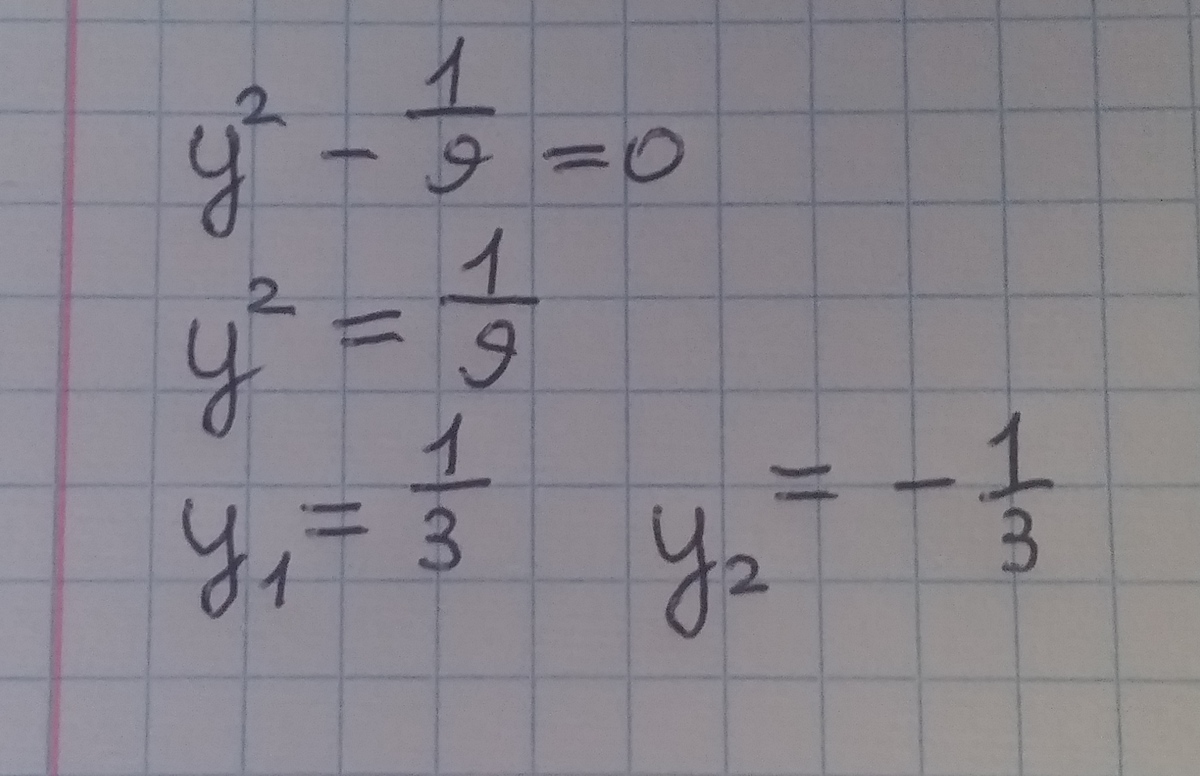 y² - 1/9 = 0
y² = 1/9
y₁ = 1/3 y₂ = - 1/3